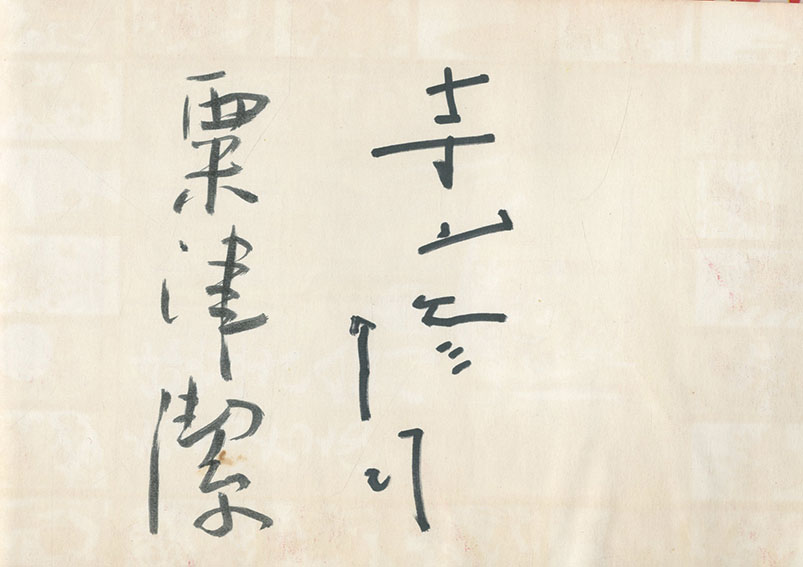 寺山修司
粟津潔